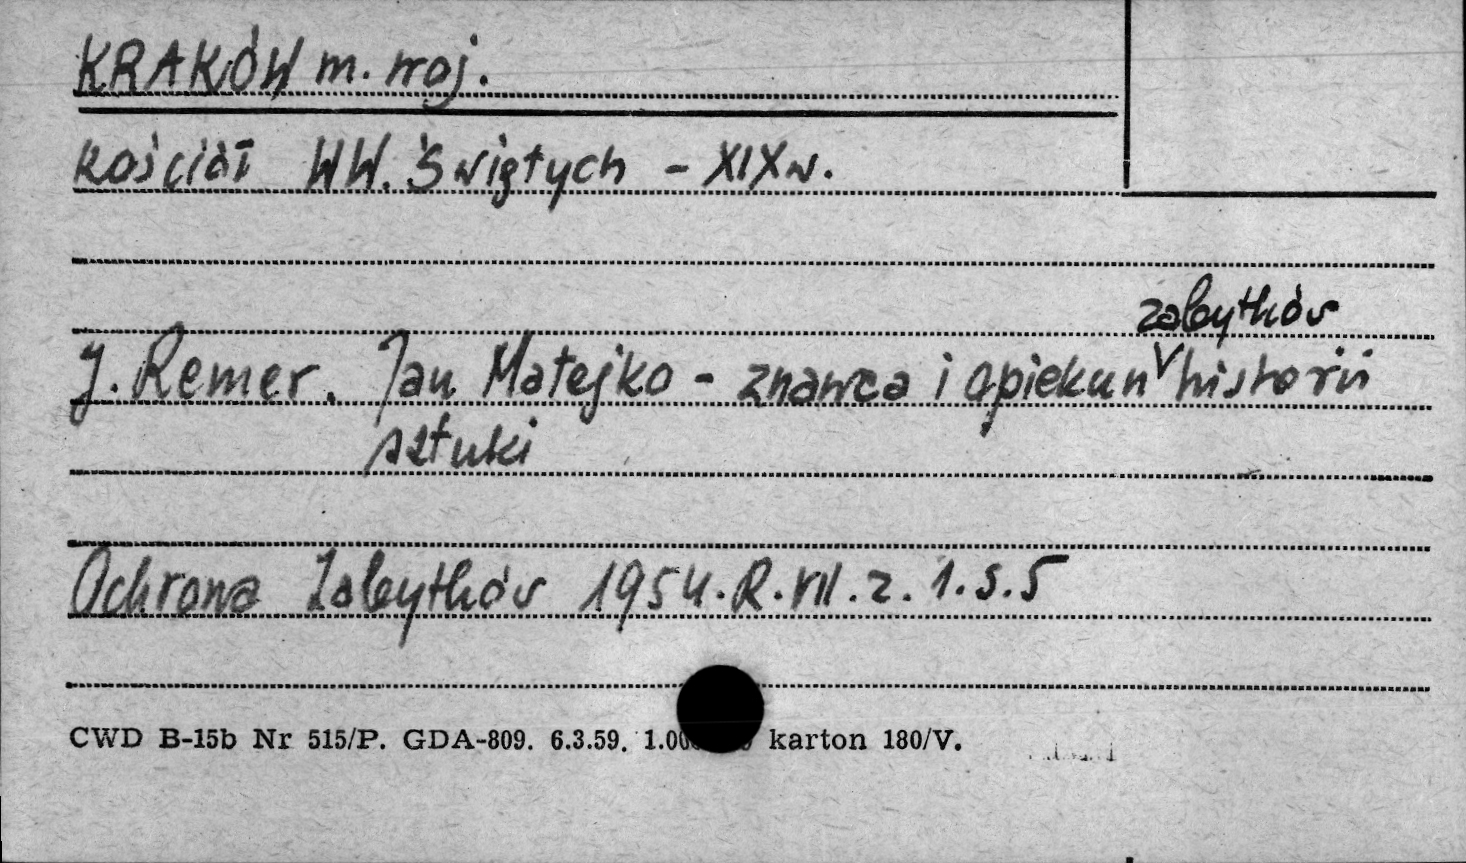 KRAKÓW m. woj.
Kościół WW. Świętych - XIX w.
zabytków
J. Remer. Jan Matejko - znawca i opiekun V historii
sztuki
Ochrona Zabytków 1954. R. VII. z. 1. s. 5
CWD B-15b Nr 515/P. GDA-809. 6.3.59. karton 180/V.